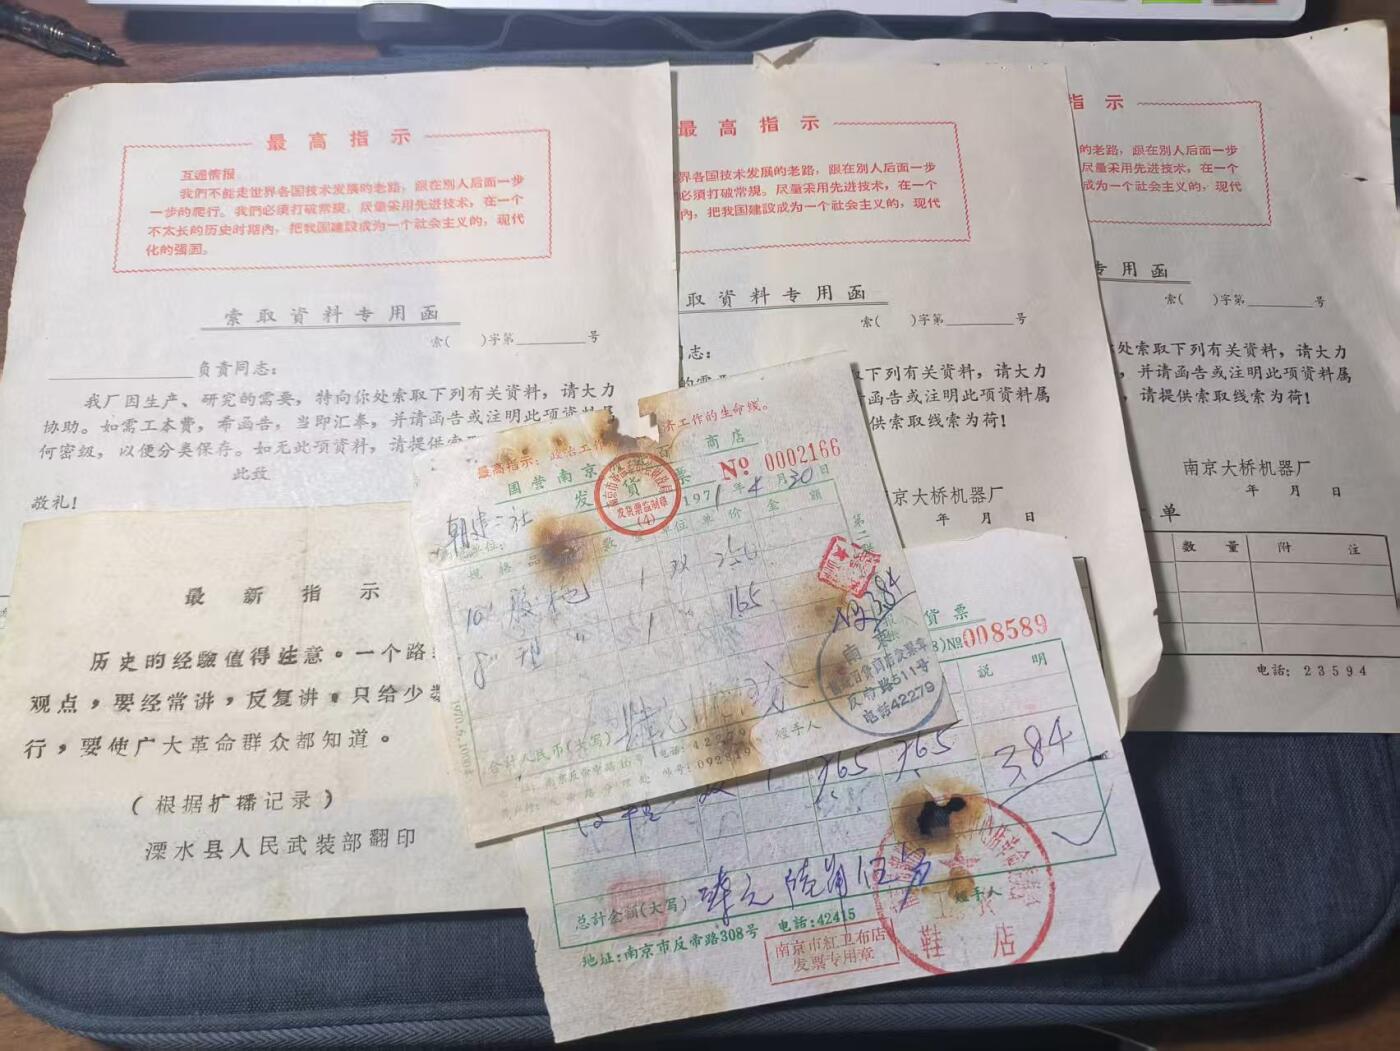 最高指示
互通情报。
我們不能走世界各国技术发展的老路，跟在別人后面一步
一步的爬行。我們必须打破常规，尽量采用先进技术，在一个
不太长的历史时期內，把我国建設成为一个社会主义的，现代
化的强国。
索取資料专用函
索( )字第 号
负责同志：
我厂因生产、研究的需要，特向你处索取下列有关资料，请大力
协助。如需工本费，希函告，当即汇奉，并请函告或注明此项资料属
何密级，以便分类保存。如无此项资料，请提供索取
此致
敬礼！
最高指示
界各国技术发展的老路，跟在別人后面一步
必须打破常规。尽量采用先进技术，在一个
內，把我国建設成为一个社会主义的，现代
取資料专用函
索( )字第 号
同志：
取下列有关资料，请大力
函告或注明此项资料属
供索取线索为荷！
京大桥机器厂
年 月 日
指示
的老路，跟在別人后面一步
尽量采用先进技术，在一个
成为一个社会主义的，现代
专用函
索( )字第 号
处索取下列有关资料，请大力
，并请函告或注明此项资料属
，请提供索取线索为荷！
南京大桥机器厂
年 月 日
单
数量 附注
电话：23594
最新指示
历史的经验值得注意。一个路
观点，要经常讲，反复讲。只给少
行，要使广大革命群众都知道。
（根据扩播记录）
溧水县人民武装部翻印
最高指示：政治工作 济工作的生命线。
国营南京 百 商店
发货票
No 0002166
1971年4月30日
发货票监制章
(4)
规格品 数 单位 单价 金额
第二联
10" 1 双
8" 1 165
合计人民币(大写)
经手人
反帝路511号
电话42279
1970.6.100本
货票
No 008589
说明
双 1 365 365
384
总計金額(大写) 肆元陆角伍分
经手人
地址:南京市反帝路308号 电话:42415
南京市紅卫布店
发票专用章
鞋店